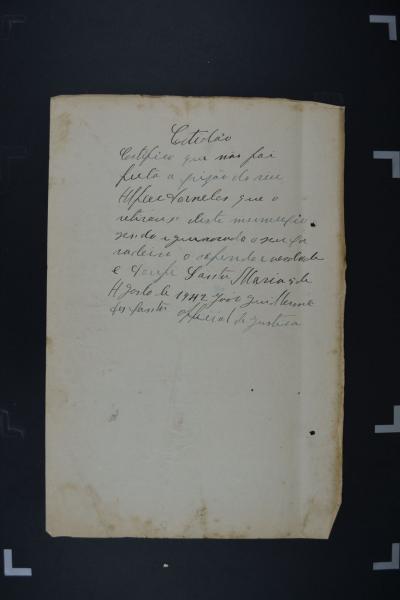 Cetidão
Certifico que não foi
feita a prisão do reu
Alfeu Dornelles que o
retirou-se deste municipio
sendo ignorado o seu pa
radeiro o referido e verdade
e dou fé Santa Maria 5 de
Agosto de 1942 João Guilherme
dos Santos Official de Justiça